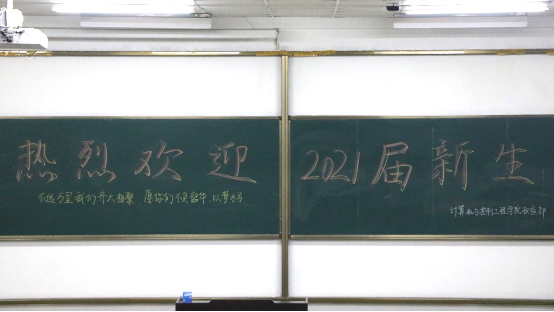 热烈欢迎 2021届新生
不远万里我们齐大相聚 愿你们不负韶华,以梦为马
计算机与控制工程学院权益部